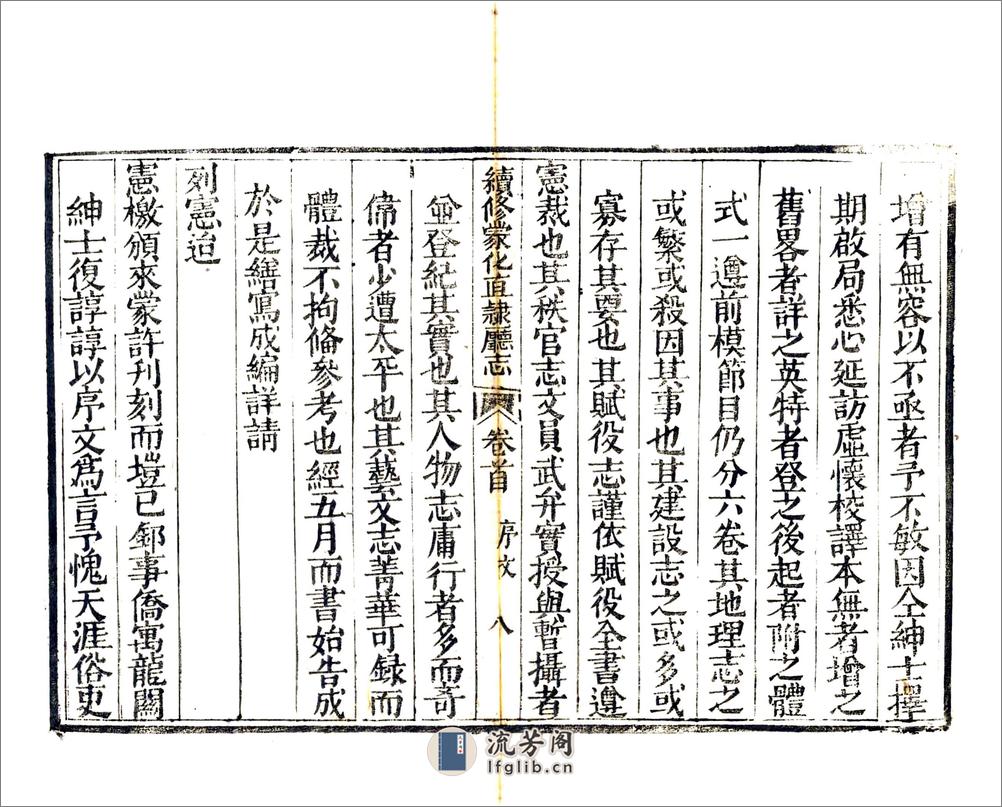 增有無容以不亟者予不敏因仝紳士擇
期啟局悉心延訪虛懷校譯本無者增之
舊畧者詳之英特者登之後起者附之體
式一遵前模節目仍分六卷其地理志之
或繁或殺因其事也其建設志之或多或
寡存其要也其賦役志謹依賦役全書遵
憲裁也其秩官志文員武弁實授與暫攝者
續修蒙化直隸廳志 卷首 序文 八
並登紀其實也其人物志庸行者多而奇
偉者少遭太平也其藝文志菁華可録而
體裁不拘備參考也經五月而書始告成
於是繕寫成編詳請
列憲迨
憲檄頒來蒙許刊刻而塏已卸事僑寓龍關
紳士復諄諄以序文為言予愧天涯俗吏
流芳阁
lfglib.cn